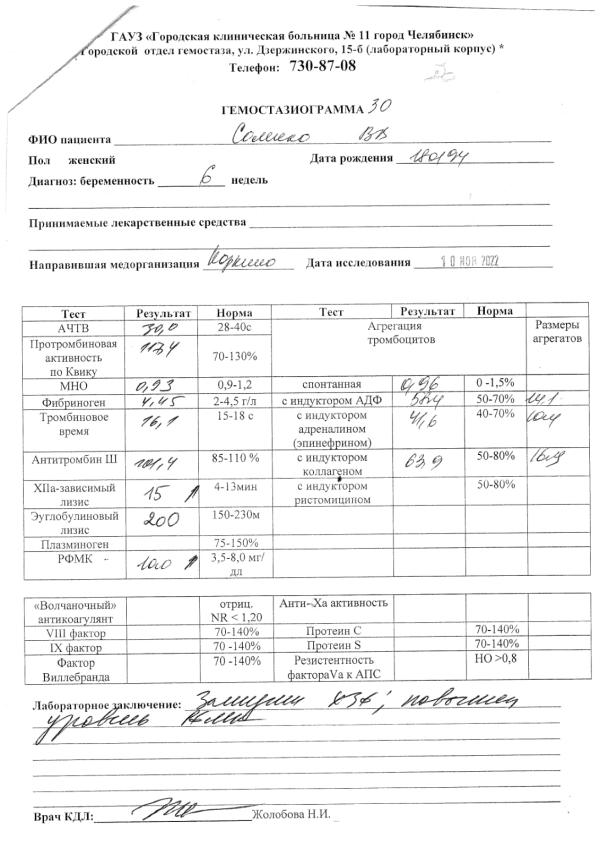 ГАУЗ «Городская клиническая больница № 11 город Челябинск»
Городской отдел гемостаза, ул. Дзержинского, 15-б (лабораторный корпус) *
Телефон: 730-87-08
ГЕМОСТАЗИОГРАММА 30
ФИО пациента
Пол женский Дата рождения 180194
Диагноз: беременность 6 недель
Принимаемые лекарственные средства
Направившая медорганизация Коркино Дата исследования 10 НОЯ 2022
Тест Результат Норма Тест Результат Норма
АЧТВ 30,0 28-40с Агрегация тромбоцитов Размеры агрегатов
Протромбиновая активность по Квику 117,4 70-130%
МНО 0,93 0,9-1,2 спонтанная 0,96 0 -1,5%
Фибриноген 4,45 2-4,5 г/л с индуктором АДФ 50-70% 14,1
Тромбиновое время 16,1 15-18 с с индуктором адреналином (эпинефрином) 41,6 40-70%
Антитромбин Ш 101,4 85-110 % с индуктором коллагеном 63,9 50-80%
XIIа-зависимый лизис 15 ↑ 4-13мин с индуктором ристомицином 50-80%
Эуглобулиновый лизис 200 150-230м
Плазминоген 75-150%
РФМК - 10.0 ↑ 3,5-8,0 мг/дл
«Волчаночный» антикоагулянт отриц. NR < 1,20 Анти-Ха активность
VIII фактор 70-140% Протеин С 70-140%
IX фактор 70 -140% Протеин S 70-140%
Фактор Виллебранда 70 -140% Резистентность фактораVa к АПС НО >0,8
Лабораторное заключение: ХЗФ, повышен
уровень
Врач КДЛ: Жолобова Н.И.